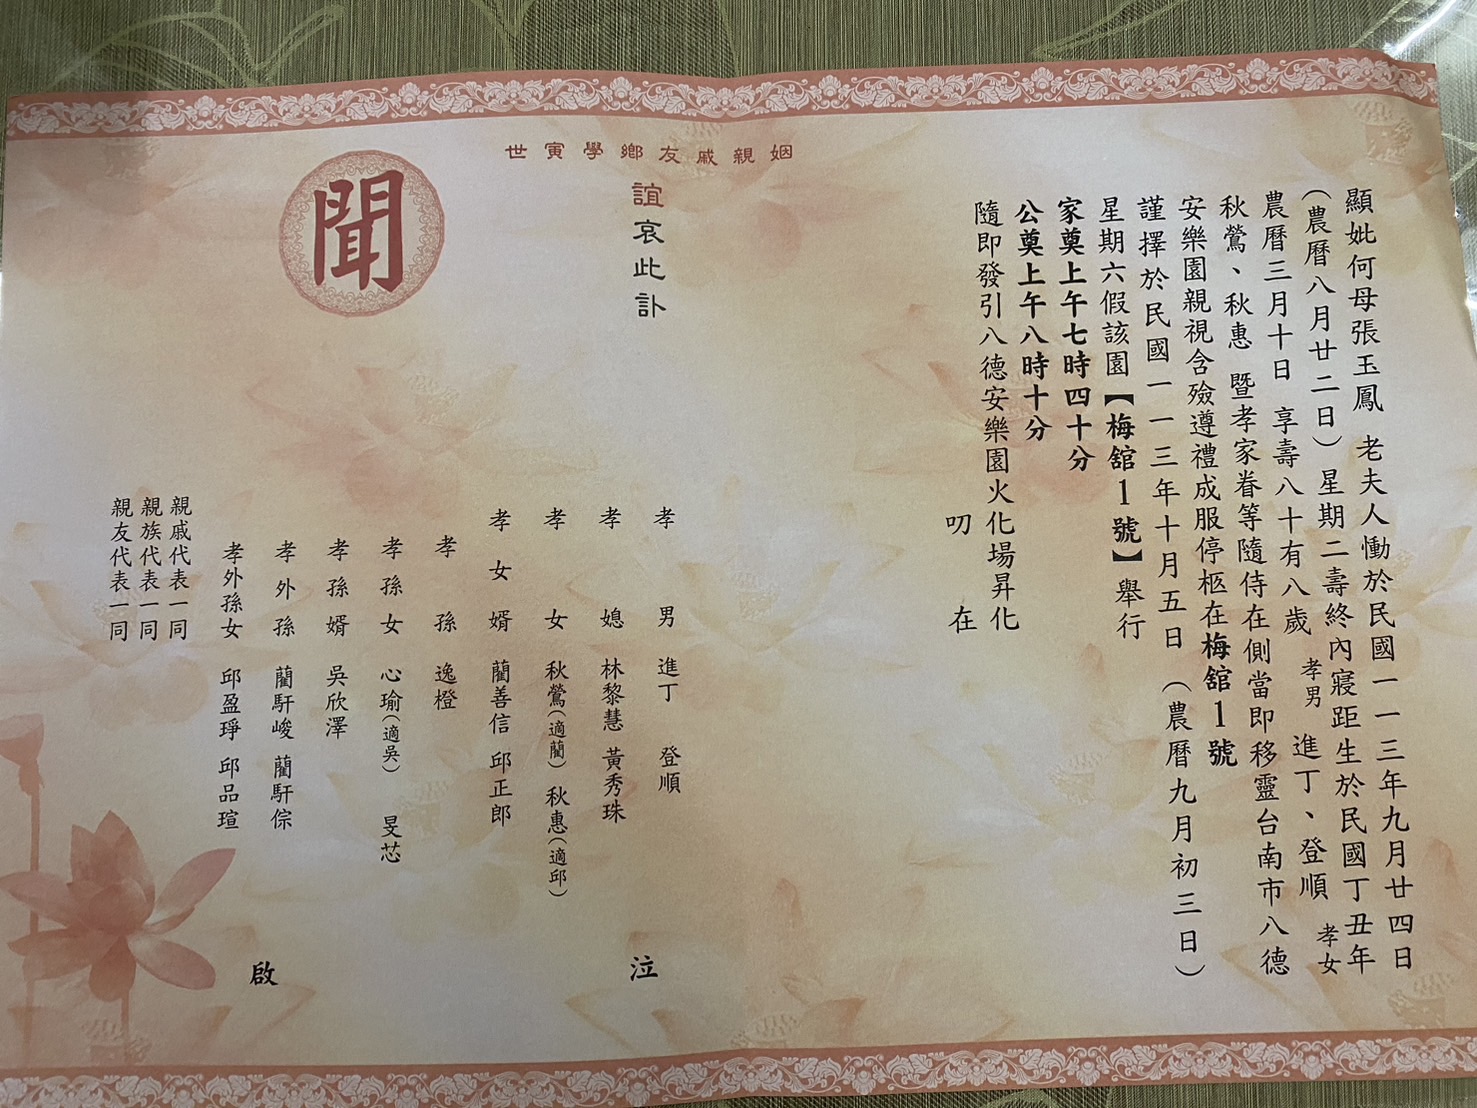 顯妣何母張玉鳳 老夫人慟於民國一一三年九月廿四日
（農曆八月廿二日）星期二壽終內寢距生於民國丁丑年
農曆三月十日 享壽八十有八歲 孝男 進丁、登順 孝女
秋鶯、秋惠 暨孝家眷等隨侍在側當即移靈台南市八德
安樂園親視含殮遵禮成服停柩在梅舘1號
謹擇於民國一一三年十月五日（農曆九月初三日）
星期六假該園【梅舘1號】舉行
家奠上午七時四十分
公奠上午八時十分
隨即發引八德安樂園火化場昇化
叨 在
姻親戚友鄉學寅世
誼哀此訃
聞
孝男 進丁 登順
孝媳 林黎慧 黃秀珠
孝女 秋鶯（適藺）秋惠（適邱）
孝女婿 藺善信 邱正郎
孝孫 逸橙
孝孫女 心瑜（適吳） 旻芯
孝孫婿 吳欣澤
孝外孫 藺馯峻 藺馯倧
孝外孫女 邱盈琤 邱品瑄
泣
親戚代表一同
親族代表一同
親友代表一同
啟